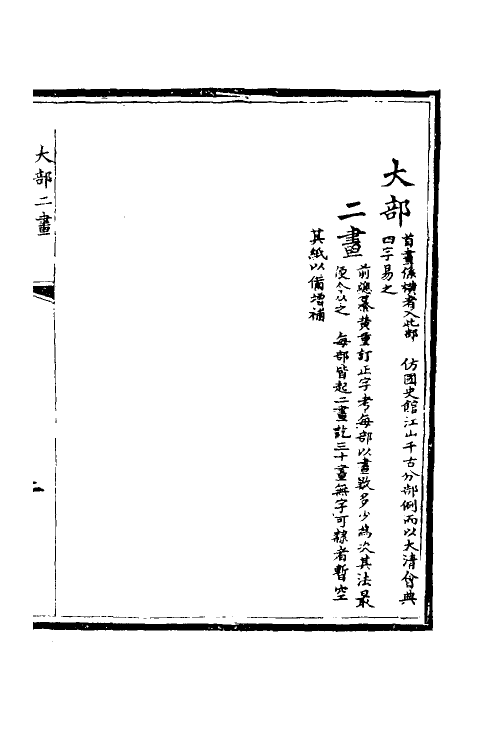 大部
首畫係橫者入此部 仿國史館江山千古分部例而以大清會典
四字易之
二畫
前總纂黃重訂正字考每部以畫數多少為次其法最
便今从之 每部皆起二畫訖三十畫無字可隸者暫空
其紙以備增補
大部二畫
二